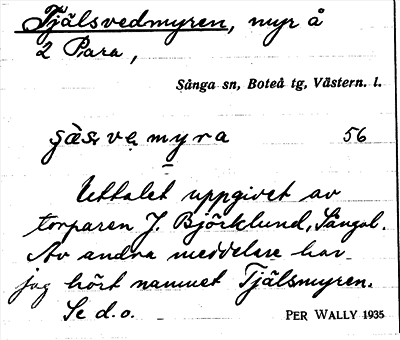 Tjälsvedmyren, myr å
2 Para,
Sånga sn, Boteå tg, Västern. l.
myra 56
Uttalet uppgivet av
torparen J. Björklund, Sångal.
Av andra meddelare har
jag hört namnet Tjälsmyren.
Se d.o.
PER WALLY 1935